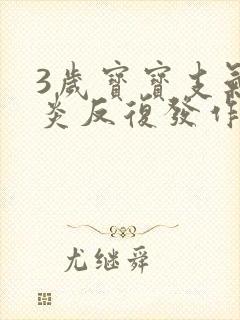 3歲寶寶支氣
炎反復發作
尤继舜